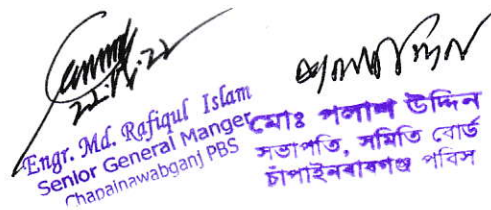 22.12.22
Engr. Md. Rafiqul Islam
Senior General Manger
Chapainawabganj PBS
মোঃ পলাশ উদ্দিন
সভাপতি, সমিতি বোর্ড
চাঁপাইনবাবগঞ্জ পবিস